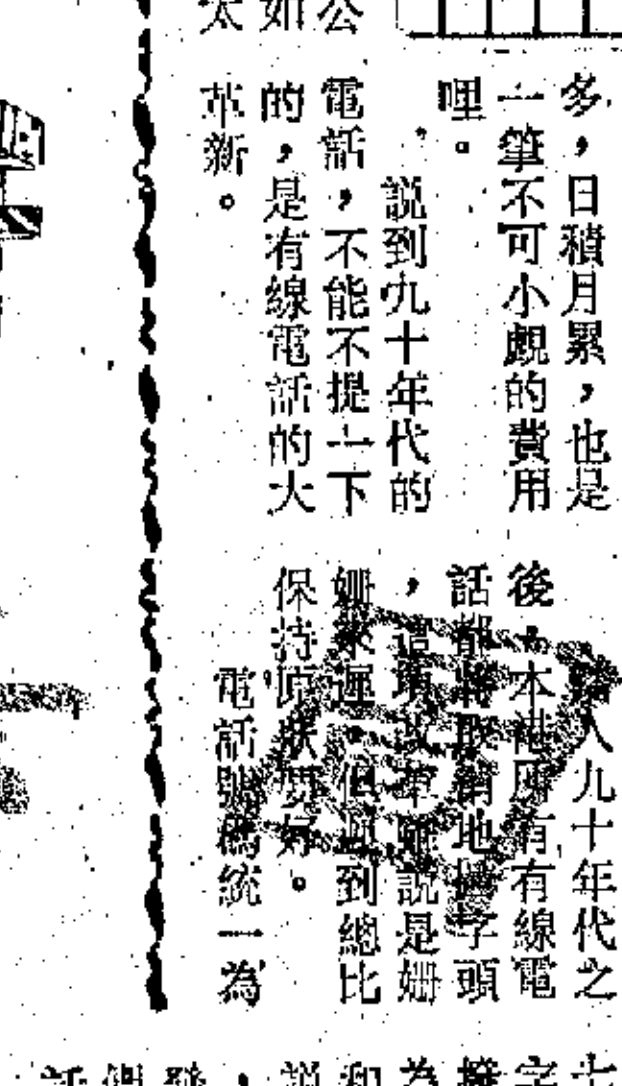 多，日積月累，也是
一筆不可小覷的費用
哩。
説到九十年代的
電話，不能不提一下
的，是有線電話的大
革新。
踏入九十年代之
後，本港所有有線電
話都將取銷地區字頭
，這項改革雖說是姍
姍來遲，但遲到總比
保持原狀要好。
電話號碼統一為